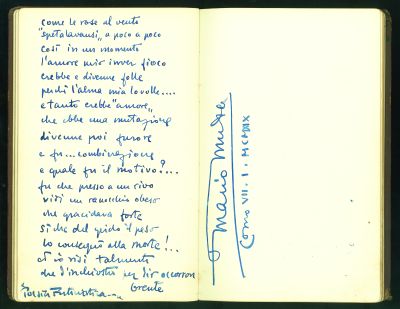 come le rose al vento
"spetalavansi" a poco a poco
così in un momento
l'amore mio inver fioco
crebbe e divenne folle
perchè l'alma mia lo volle....
e tanto crebbe "amore"
che ebbe una mutazione
divenne poi furore
e fu... combinazione
e quale fu il motivo?...
fu che presso a un rivo
vidi un ranocchio obeso
che gracidava forte
sì che del grido il peso
lo consegnò alla morte!...
ed io risi talmente
che d'inchiostri per dir occorron
Poesia
Mario
Como VII. I. MCMXIX